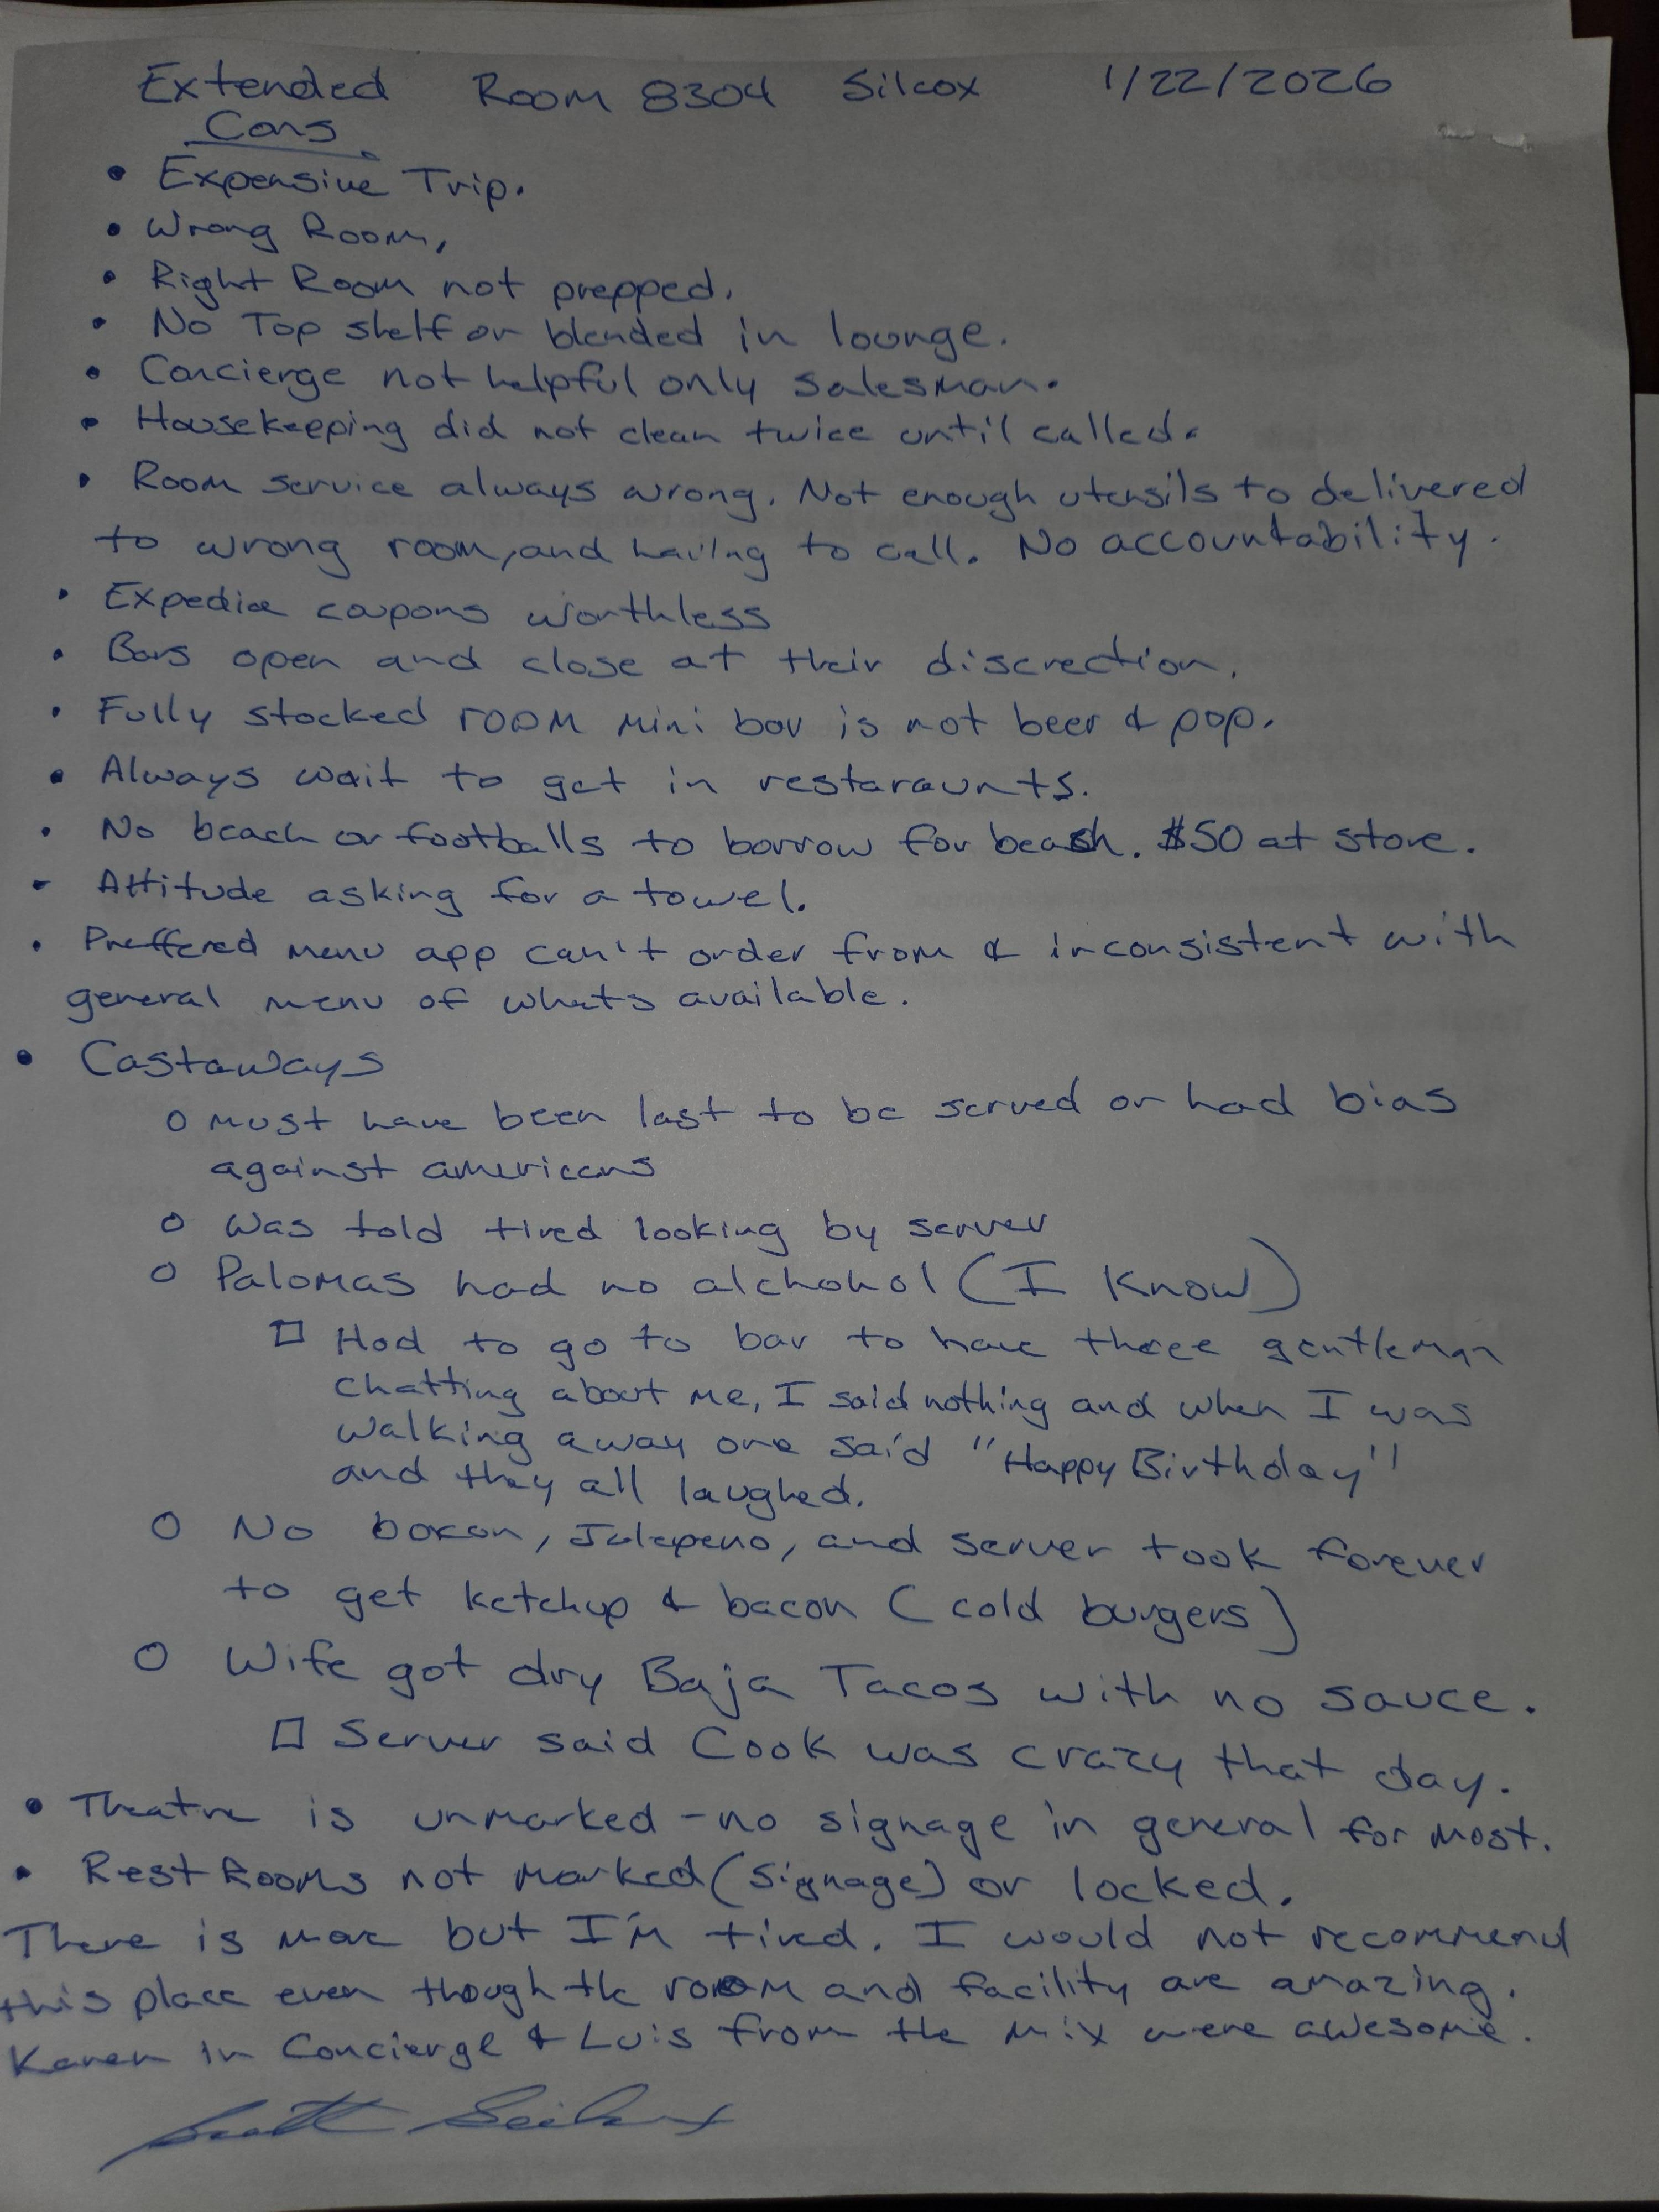 Extended Room 8304 Silcox 1/22/2026
Cons
• Expensive Trip.
• Wrong Room,
• Right Room not prepped.
• No Top shelf or blended in lounge.
• Concierge not helpful only salesman.
• Housekeeping did not clean twice until called.
• Room service always wrong. Not enough utensils to delivered
to wrong room, and having to call. No accountability.
• Expedia coupons worthless
• Bars open and close at their discrection.
• Fully stocked room mini bar is not beer & pop.
• Always wait to get in restaraunts.
• No beach or footballs to borrow for beach. $50 at store.
- Attitude asking for a towel.
• Preffered menu app can't order from & inconsistent with
general menu of whats available.
• Castaways
o must have been last to be served or had bias
against americans
o Was told tired looking by server
o Palomas had no alchohol (I Know)
□ Had to go to bar to have three gentleman
chatting about me, I said nothing and when I was
walking away one said "Happy Birthday"
and they all laughed.
o No bacon, Jalepeno, and server took forever
to get ketchup & bacon (cold burgers)
o Wife got dry Baja Tacos with no sauce.
□ Server said Cook was crazy that day.
• Theatre is unmarked - no signage in general for most.
• Rest Rooms not marked (signage) or locked.
There is more but I'm tired. I would not recommend
this place even though the room and facility are amazing.
Karen in Concierge & Luis from the Mix were awesome.
Scott